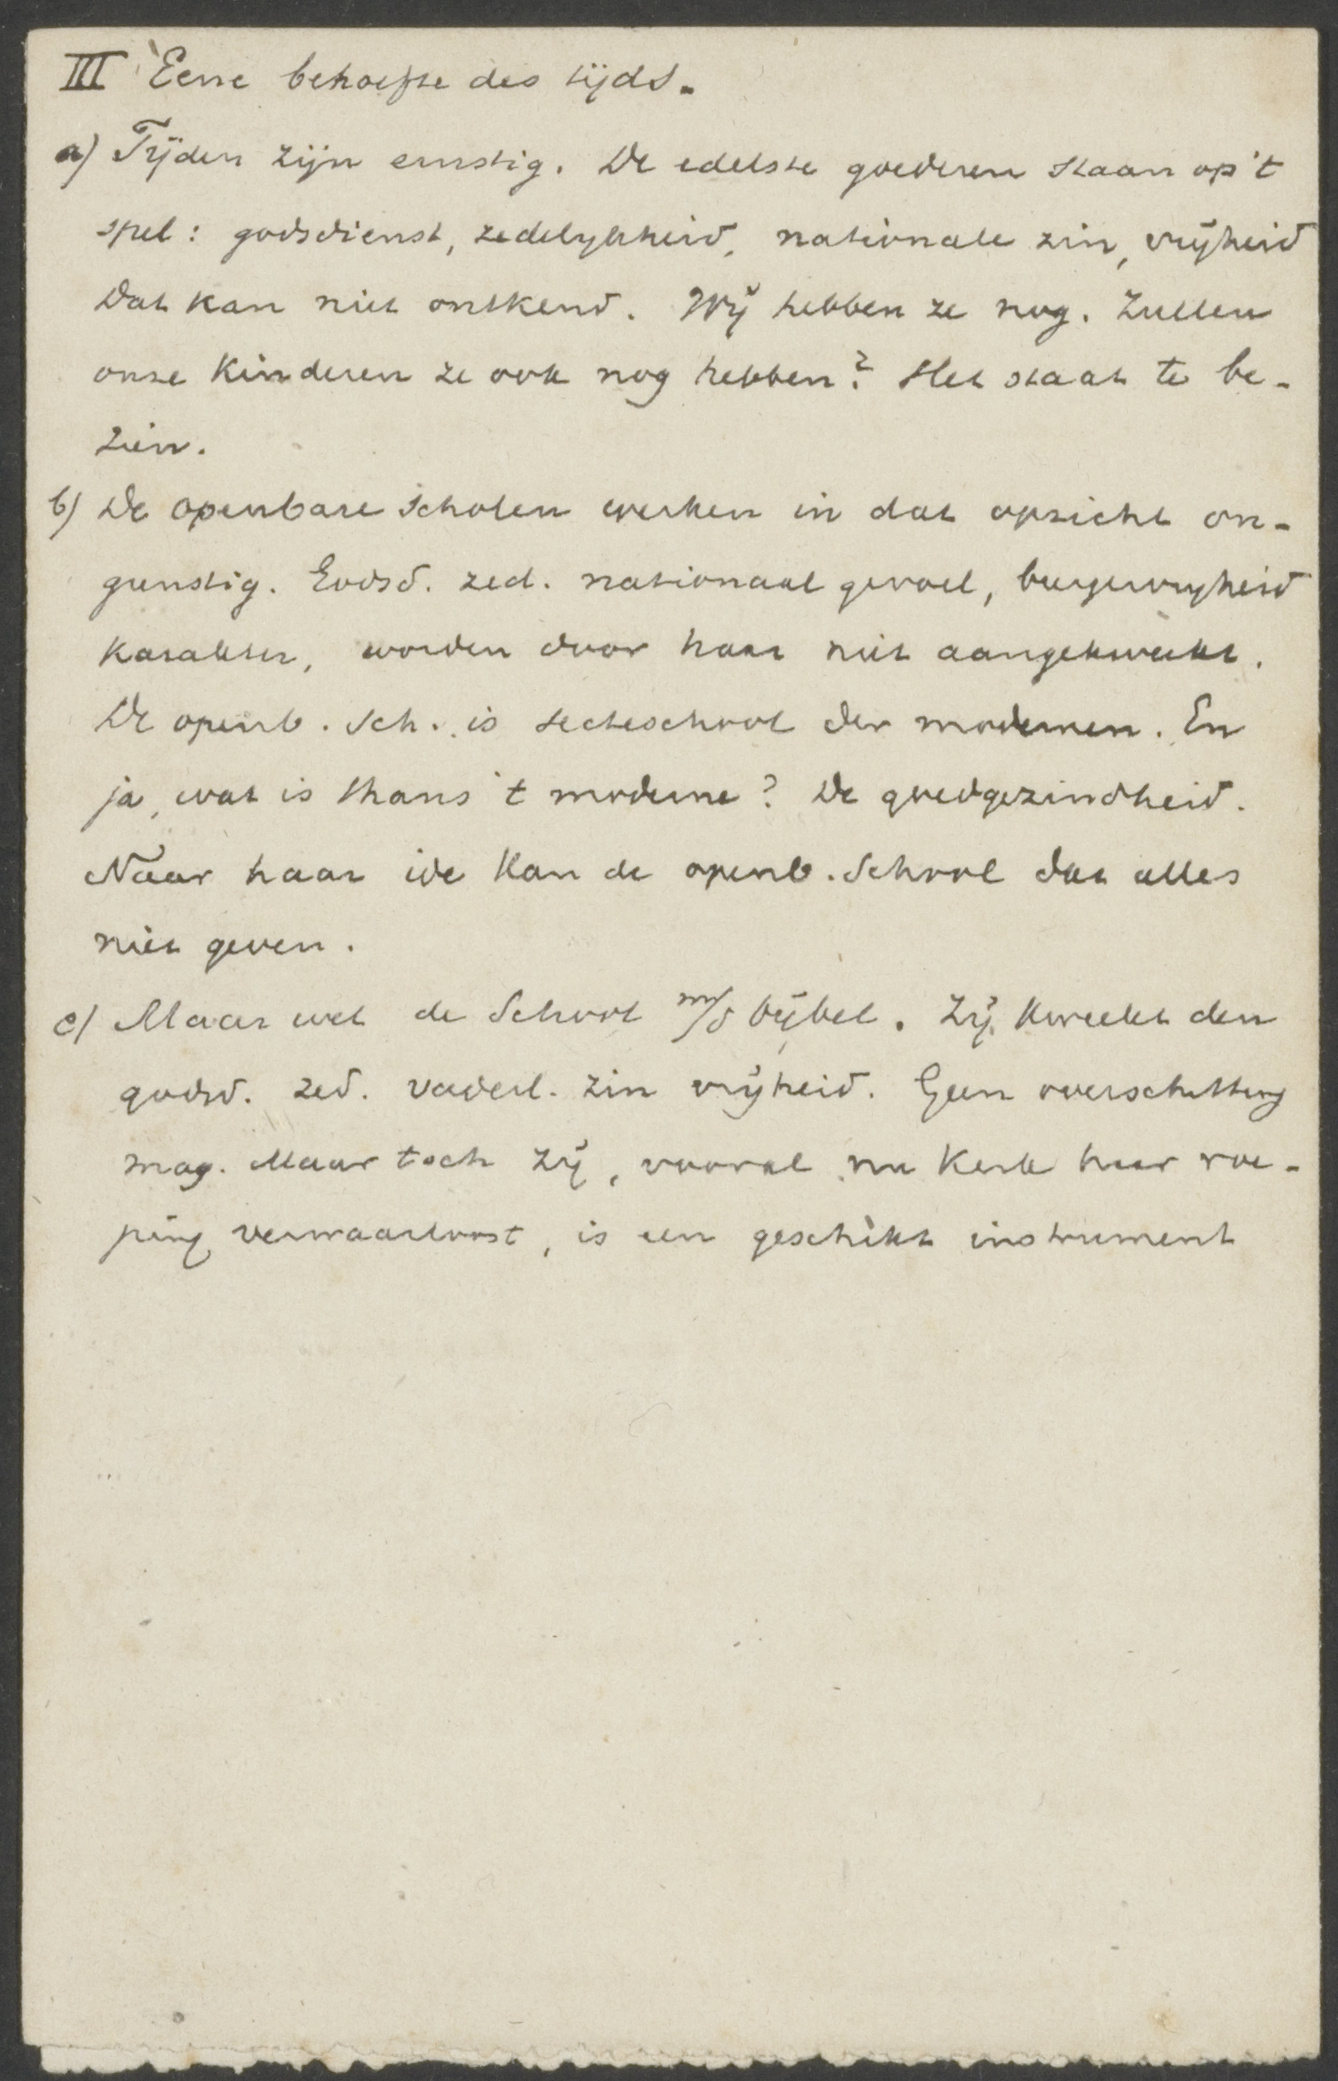 III Eene behoefte des tijds.
a) Tijden zijn ernstig. De edelste goederen staan op 't
spel: godsdienst, zedelijkheid, nationale zin, vrijheid
Dat kan niet ontkend. Wij hebben ze nog. Zullen
onze kinderen ze ook nog hebben? Het staat te be-
zien.
b) De openbare scholen werken in dat opzicht on-
gunstig. Godsd. zed. nationaal gevoel, burgervrijheid
karakter, worden door haar niet aangekweekt.
De openb. sch. is secteschool der modernen. En
ja, wat is thans 't moderne? De goedgezindheid.
Naar haar ide kan de openb. School dat alles
niet geven.
c) Maar wel de School m/d bijbel. Zij kweekt den
godsd. zed. vaderl. zin vrijheid. Geen overschatting
mag. Maar toch zij, vooral nu kerk haar roe-
ping verwaarloost, is een geschikt instrument